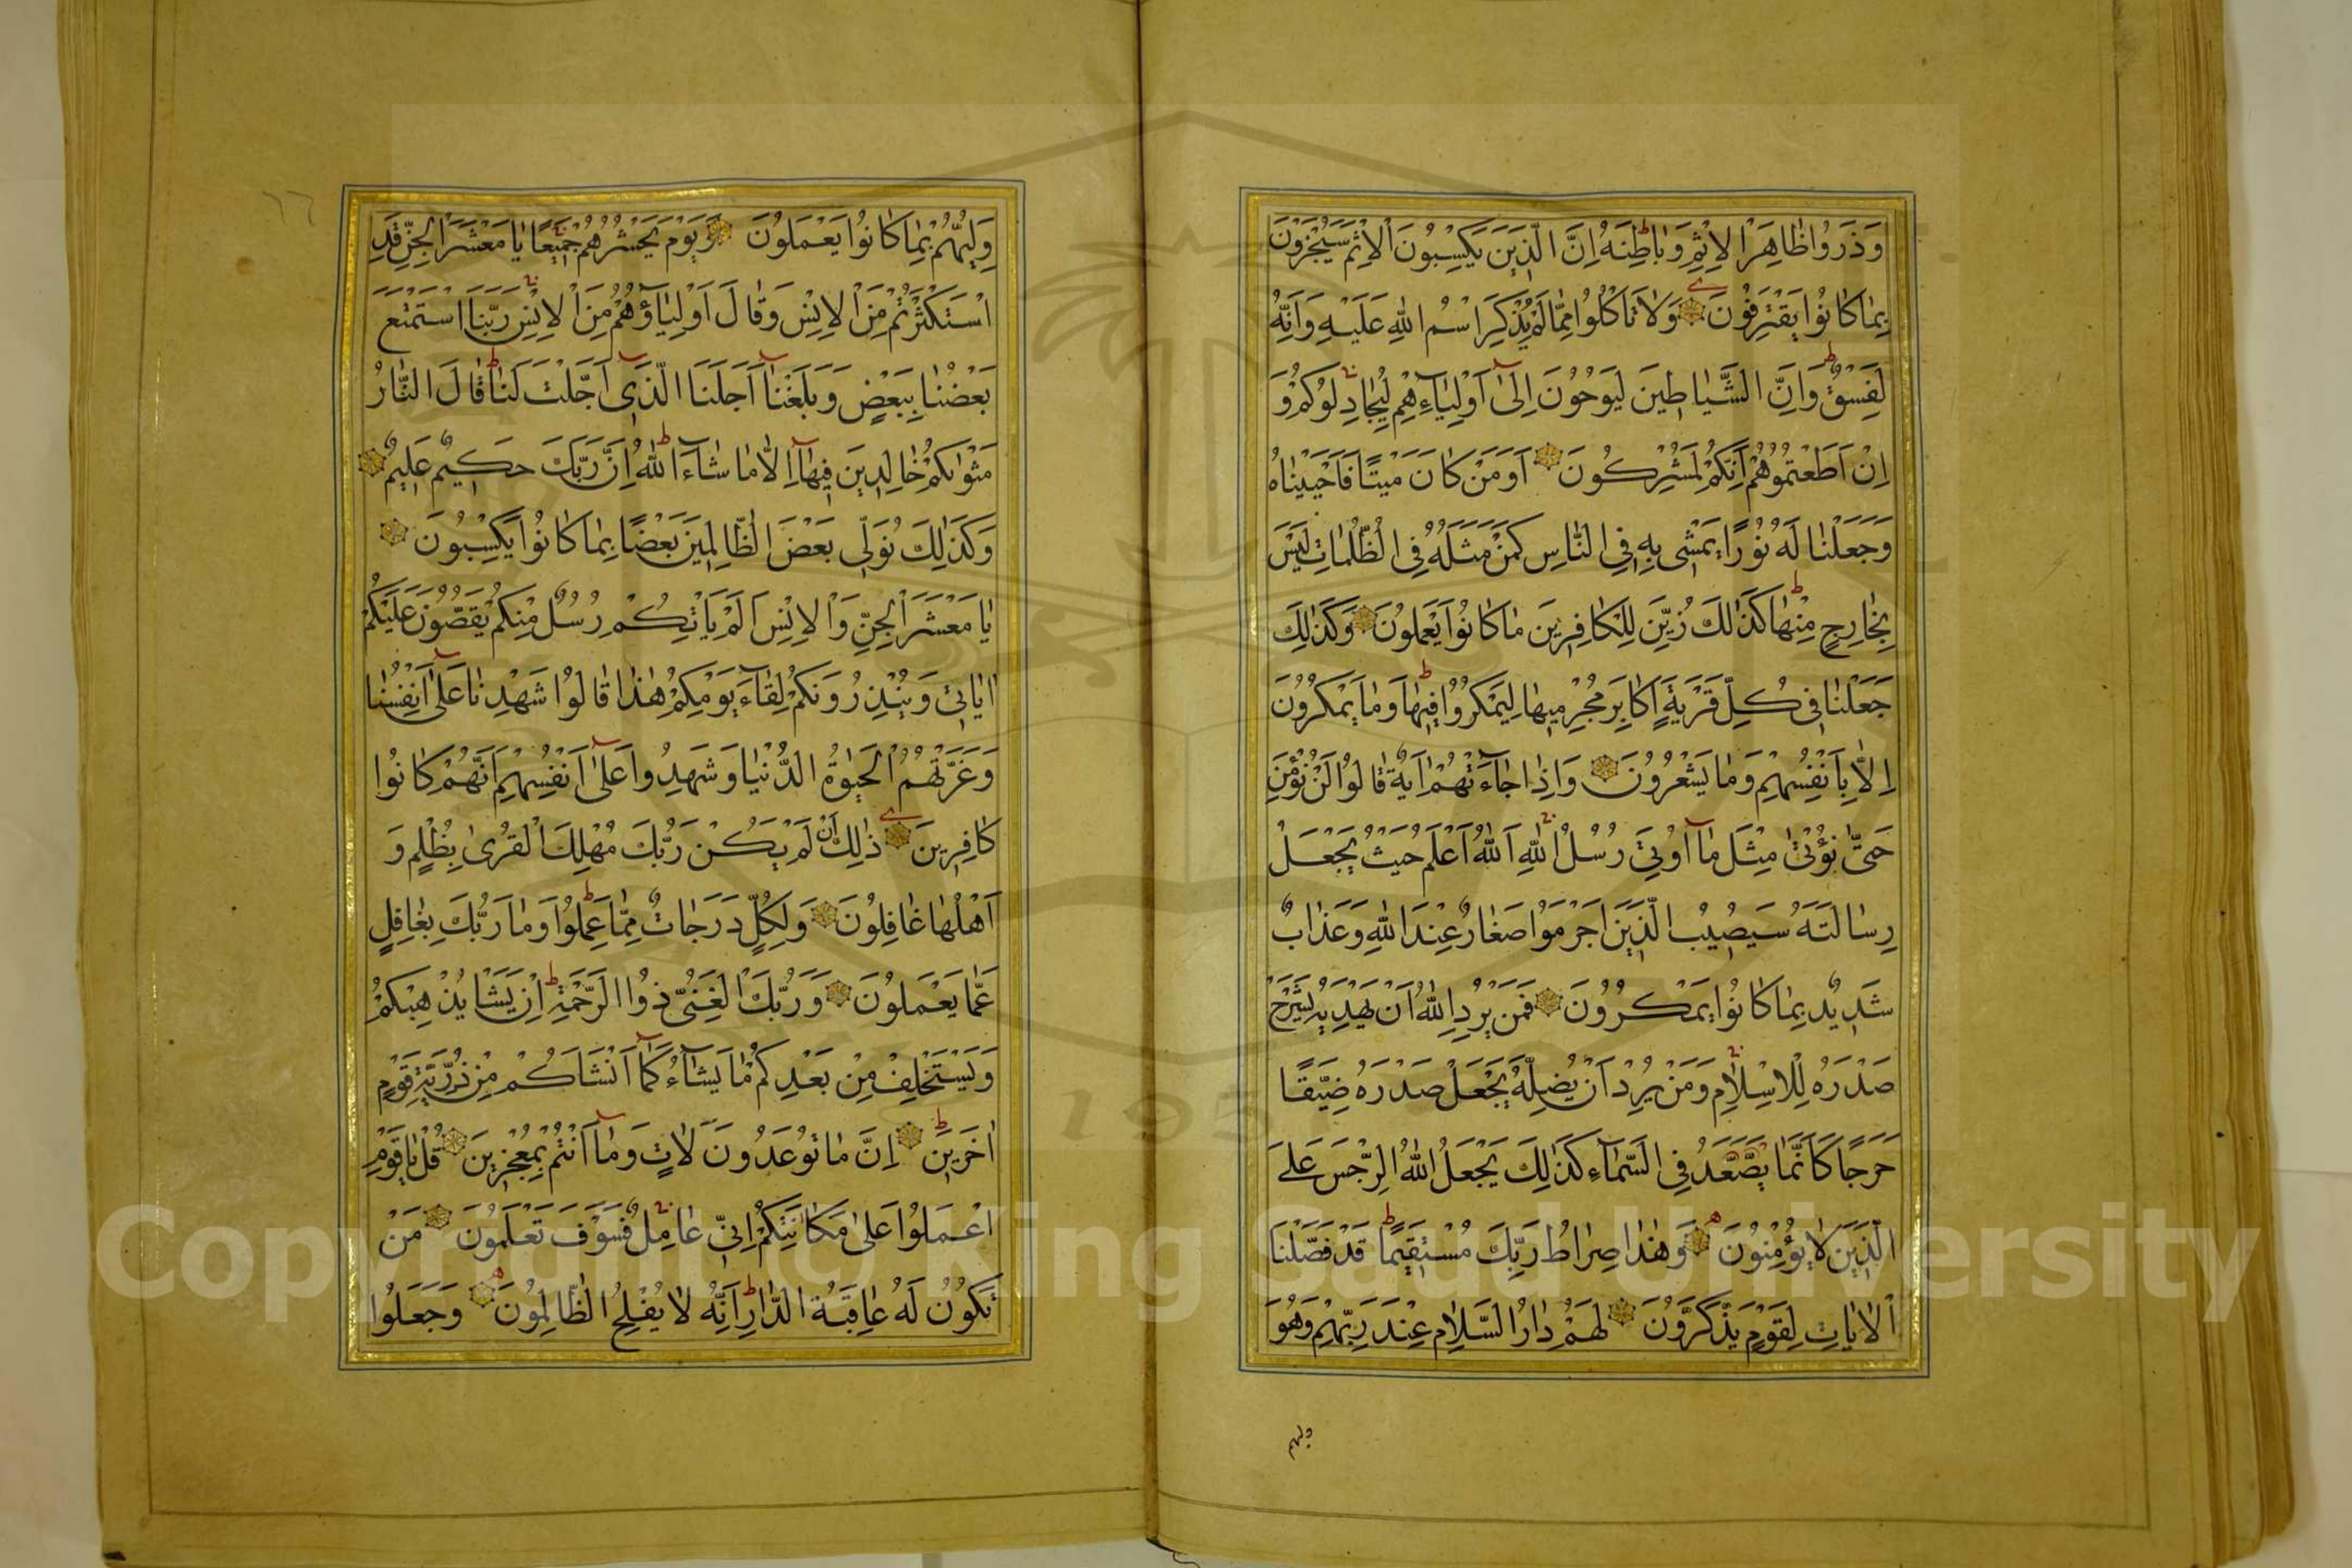 وَذَرُوا ظَاهِرَ الْاِثْمِ وَبَاطِنَهُ اِنَّ الَّذِينَ يَكْسِبُونَ الْاِثْمَ سَيُجْزَوْنَ
بِمَا كَانُوا يَقْتَرِفُونَ وَلَا تَاْكُلُوا مِمَّا لَمْ يُذْكَرِ اسْمُ اللّٰهِ عَلَيْهِ وَاَنَّهُ
لَفِسْقٌ وَاِنَّ الشَّيَاطِينَ لَيُوحُونَ اِلٰٓى اَوْلِيَآءِهِمْ لِيُجَادِلُوكُمْ وَ
اِنْ اَطَعْتُمُوهُمْ اِنَّكُمْ لَمُشْرِكُونَ اَوَمَنْ كَانَ مَيْتًا فَاَحْيَيْنَاهُ
وَجَعَلْنَا لَهُ نُورًا يَمْشِى بِهِ فِى النَّاسِ كَمَنْ مَثَلُهُ فِى الظُّلُمَاتِ لَيْسَ
بِخَارِجٍ مِنْهَا كَذٰلِكَ زُيِّنَ لِلْكَافِرِينَ مَا كَانُوا يَعْمَلُونَ وَكَذٰلِكَ
جَعَلْنَا فِى كُلِّ قَرْيَةٍ اَكَابِرَ مُجْرِمِيهَا لِيَمْكُرُوا فِيهَا وَمَا يَمْكُرُونَ
اِلَّا بِاَنْفُسِهِمْ وَمَا يَشْعُرُونَ وَاِذَا جَآءَتْهُمْ اٰيَةٌ قَالُوا لَنْ نُؤْمِنَ
حَتّٰى نُؤْتٰى مِثْلَ مَآ اُوتِىَ رُسُلُ اللّٰهِ اَللّٰهُ اَعْلَمُ حَيْثُ يَجْعَلُ
رِسَالَتَهُ سَيُصِيبُ الَّذِينَ اَجْرَمُوا صَغَارٌ عِنْدَ اللّٰهِ وَعَذَابٌ
شَدِيدٌ بِمَا كَانُوا يَمْكُرُونَ فَمَنْ يُرِدِ اللّٰهُ اَنْ يَهْدِيَهُ يَشْرَحْ
صَدْرَهُ لِلْاِسْلَامِ وَمَنْ يُرِدْ اَنْ يُضِلَّهُ يَجْعَلْ صَدْرَهُ ضَيِّقًا
حَرَجًا كَاَنَّمَا يَصَّعَّدُ فِى السَّمَآءِ كَذٰلِكَ يَجْعَلُ اللّٰهُ الرِّجْسَ عَلَى
الَّذِينَ لَا يُؤْمِنُونَ وَهٰذَا صِرَاطُ رَبِّكَ مُسْتَقِيمًا قَدْ فَصَّلْنَا
الْاٰيَاتِ لِقَوْمٍ يَذَّكَّرُونَ لَهُمْ دَارُ السَّلَامِ عِنْدَ رَبِّهِمْ وَهُوَ
وليهم
وَلِيُّهُمْ بِمَا كَانُوا يَعْمَلُونَ وَيَوْمَ يَحْشُرُهُمْ جَمِيعًا يَا مَعْشَرَ الْجِنِّ قَدِ
اسْتَكْثَرْتُمْ مِنَ الْاِنْسِ وَقَالَ اَوْلِيَآؤُهُمْ مِنَ الْاِنْسِ رَبَّنَا اسْتَمْتَعَ
بَعْضُنَا بِبَعْضٍ وَبَلَغْنَآ اَجَلَنَا الَّذِىٓ اَجَّلْتَ لَنَا قَالَ النَّارُ
مَثْوٰىكُمْ خَالِدِينَ فِيهَآ اِلَّا مَا شَآءَ اللّٰهُ اِنَّ رَبَّكَ حَكِيمٌ عَلِيمٌ
وَكَذٰلِكَ نُوَلِّى بَعْضَ الظَّالِمِينَ بَعْضًا بِمَا كَانُوا يَكْسِبُونَ
يَا مَعْشَرَ الْجِنِّ وَالْاِنْسِ اَلَمْ يَاْتِكُمْ رُسُلٌ مِنْكُمْ يَقُصُّونَ عَلَيْكُمْ
اٰيَاتِى وَيُنْذِرُونَكُمْ لِقَآءَ يَوْمِكُمْ هٰذَا قَالُوا شَهِدْنَا عَلٰٓى اَنْفُسِنَا
وَغَرَّتْهُمُ الْحَيٰوةُ الدُّنْيَا وَشَهِدُوا عَلٰٓى اَنْفُسِهِمْ اَنَّهُمْ كَانُوا
كَافِرِينَ ذٰلِكَ اَنْ لَمْ يَكُنْ رَبُّكَ مُهْلِكَ الْقُرٰى بِظُلْمٍ وَ
اَهْلُهَا غَافِلُونَ وَلِكُلٍّ دَرَجَاتٌ مِمَّا عَمِلُوا وَمَا رَبُّكَ بِغَافِلٍ
عَمَّا يَعْمَلُونَ وَرَبُّكَ الْغَنِىُّ ذُوا الرَّحْمَةِ اِنْ يَشَا يُذْهِبْكُمْ
وَيَسْتَخْلِفْ مِنْ بَعْدِكُمْ مَا يَشَآءُ كَمَآ اَنْشَاَكُمْ مِنْ ذُرِّيَّةِ قَوْمٍ
اٰخَرِينَ اِنَّ مَا تُوعَدُونَ لَاٰتٍ وَمَآ اَنْتُمْ بِمُعْجِزِينَ قُلْ يَا قَوْمِ
اعْمَلُوا عَلٰى مَكَانَتِكُمْ اِنِّى عَامِلٌ فَسَوْفَ تَعْلَمُونَ مَنْ
تَكُونُ لَهُ عَاقِبَةُ الدَّارِ اِنَّهُ لَا يُفْلِحُ الظَّالِمُونَ وَجَعَلُوا
٦٦
1957
Copyright © King Saud University